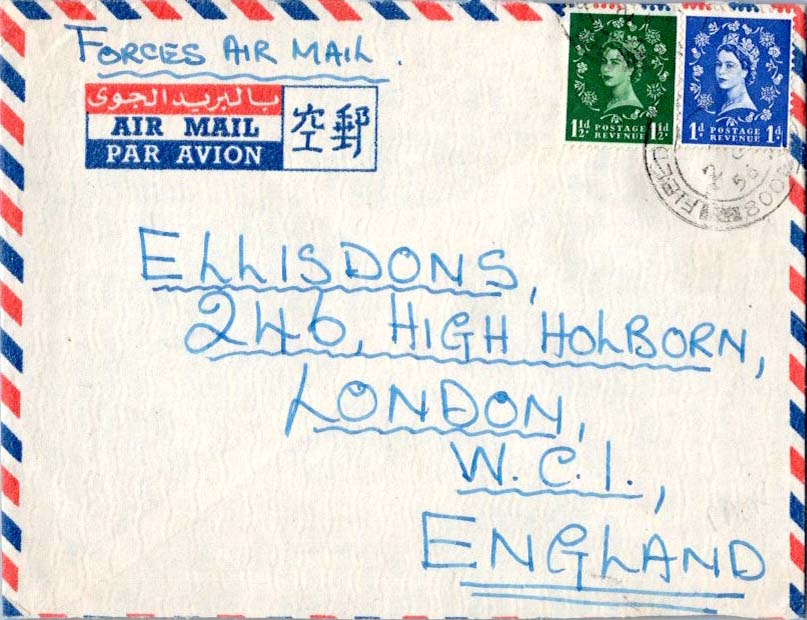 FORCES AIR MAIL.
بالبريد الجوى
AIR MAIL
PAR AVION
空郵
1½d. POSTAGE REVENUE 1½d.
1d. POSTAGE REVENUE 1d.
FIELD
56
800
ELLISDONS,
246, HIGH HOLBORN,
LONDON,
W.C.1.,
ENGLAND